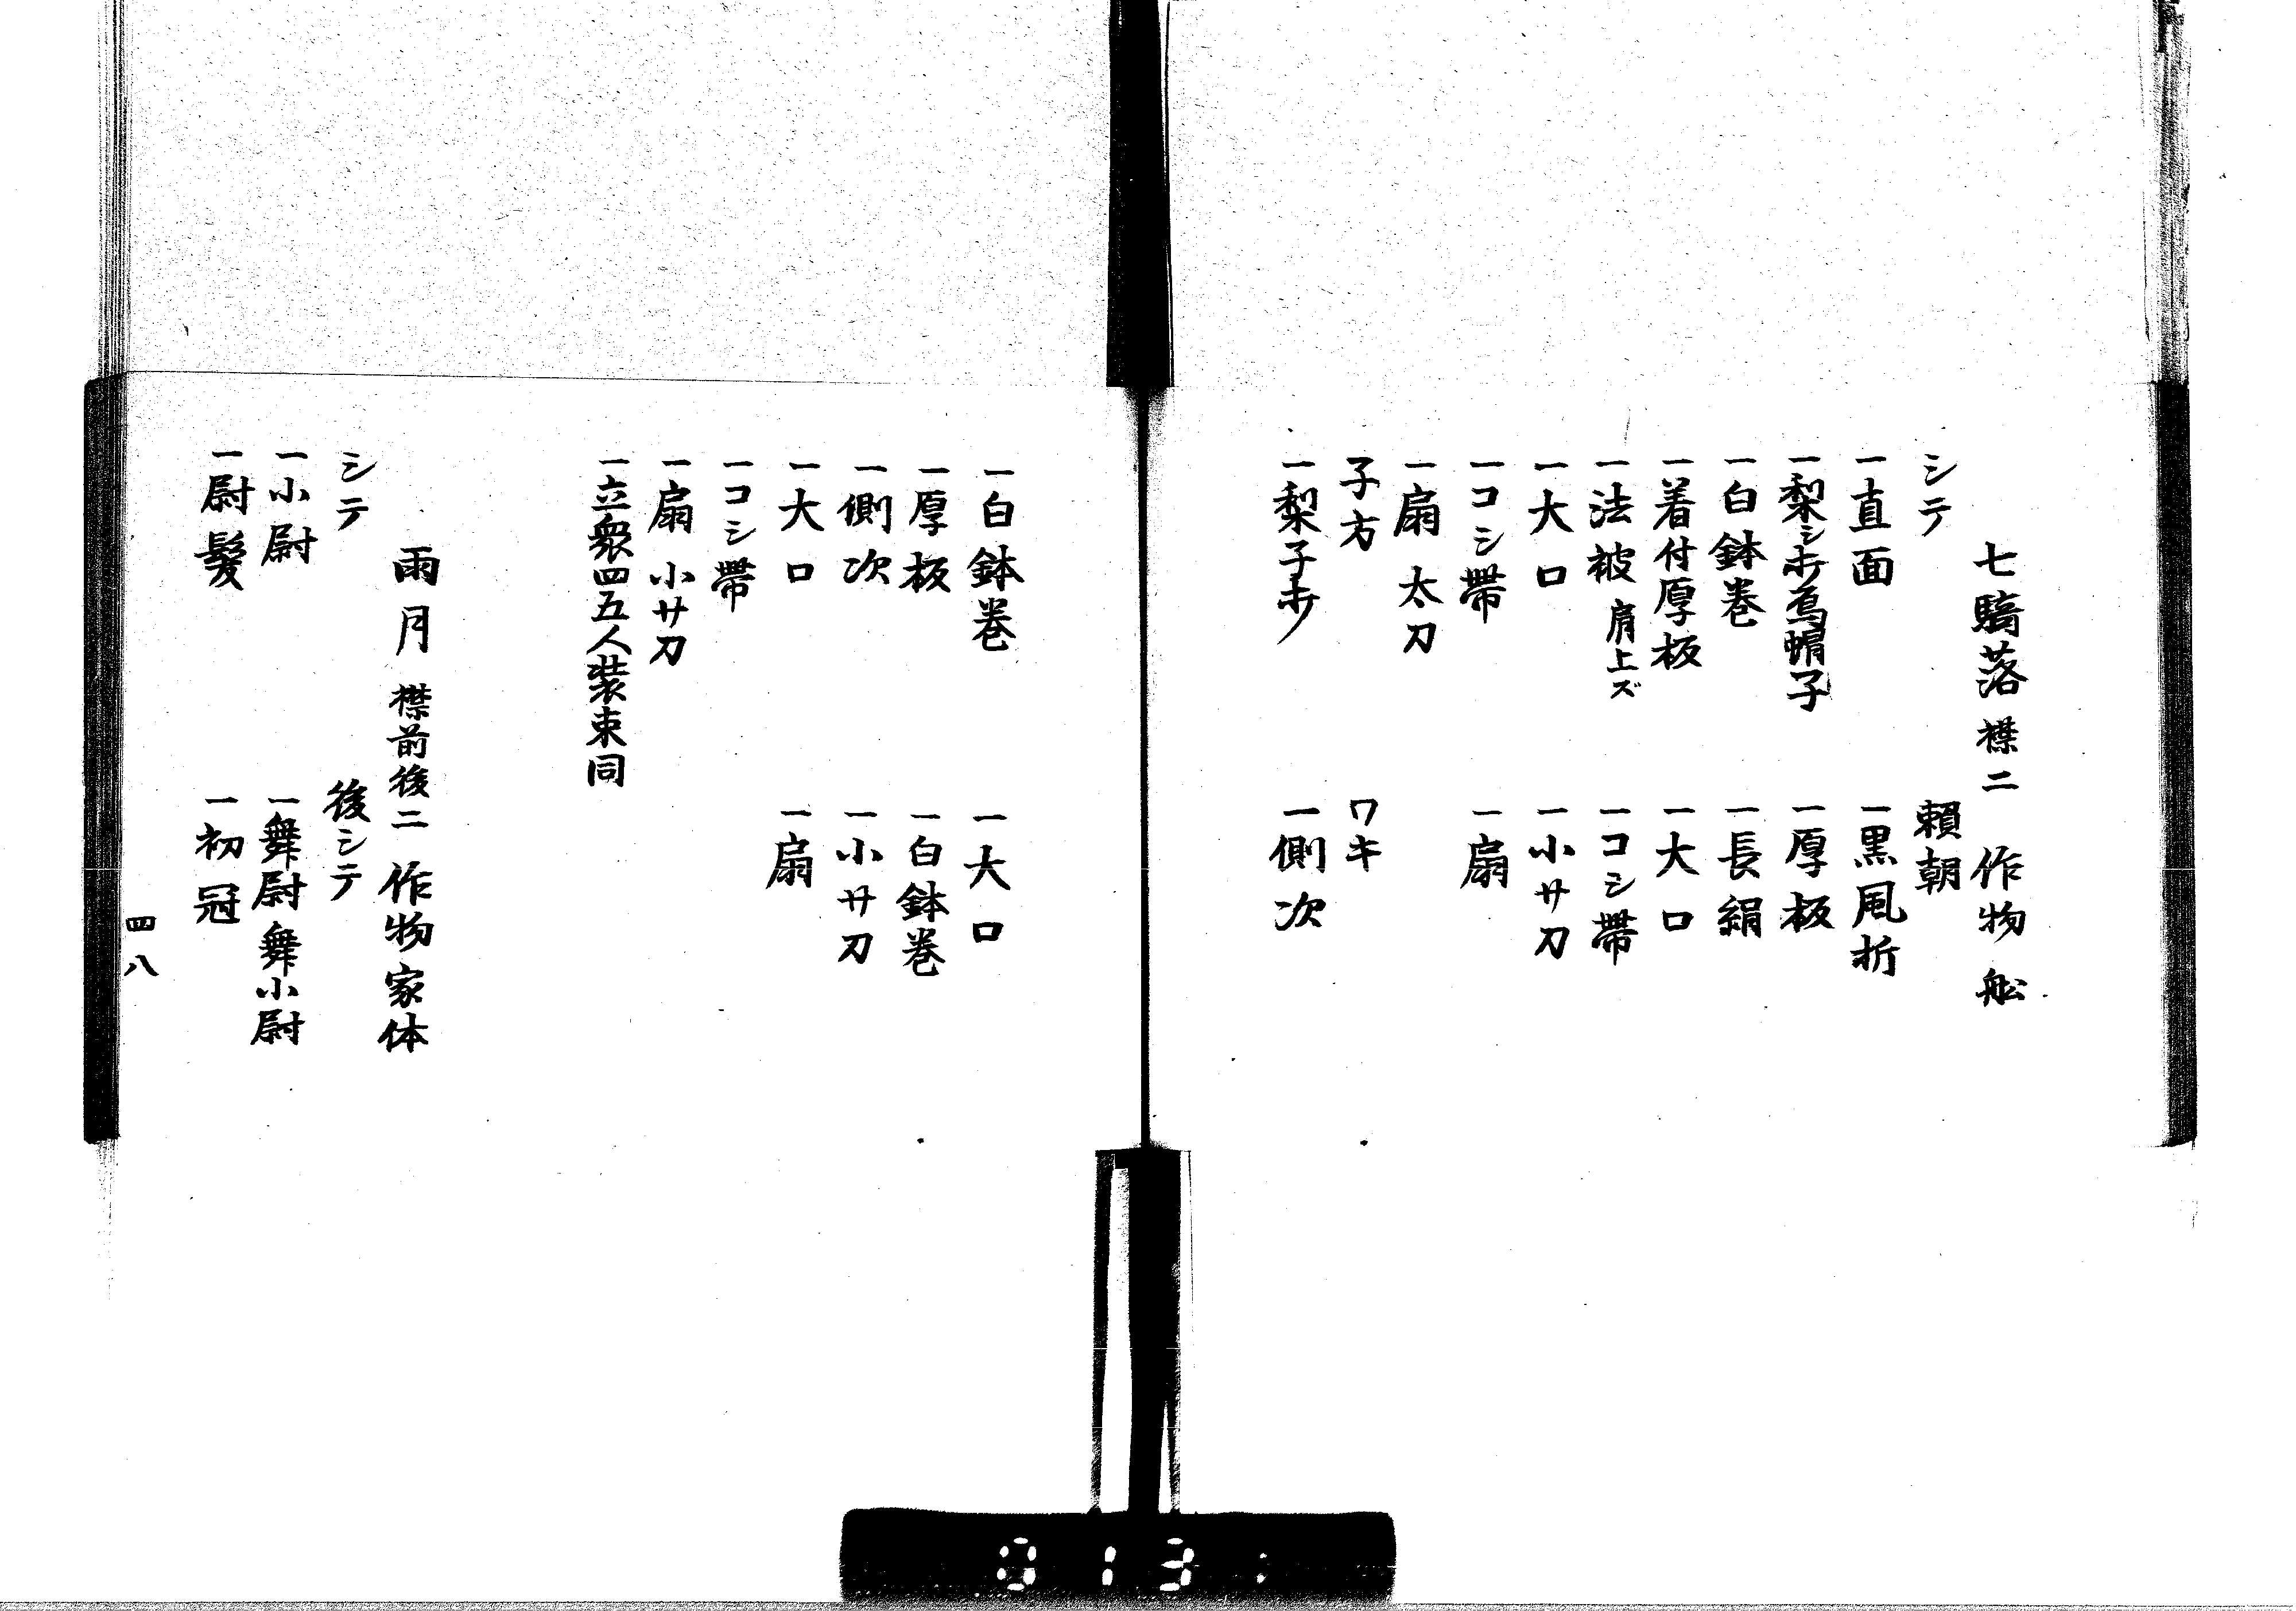 七騎落 襟二 作物舩
シテ 頼朝
一直面 一黒風折
一梨シ打烏帽子 一厚板
一白鉢巻 一長絹
一着付厚板 一大口
一法被 肩上ズ 一コシ帯
一大口 一小サ刀
一コシ帯 一扇
一扇 太刀
子方 ワキ
一梨子打 一側次
一白鉢巻 一大口
一厚板 一白鉢巻
一側次 一小サ刀
一大口 一扇
一コシ帯
一扇 小サ刀
一立衆四五人装束同
雨月 襟前後二 作物家体
シテ 後シテ
一小尉 一舞尉 舞小尉
一尉髪 一初冠
四八